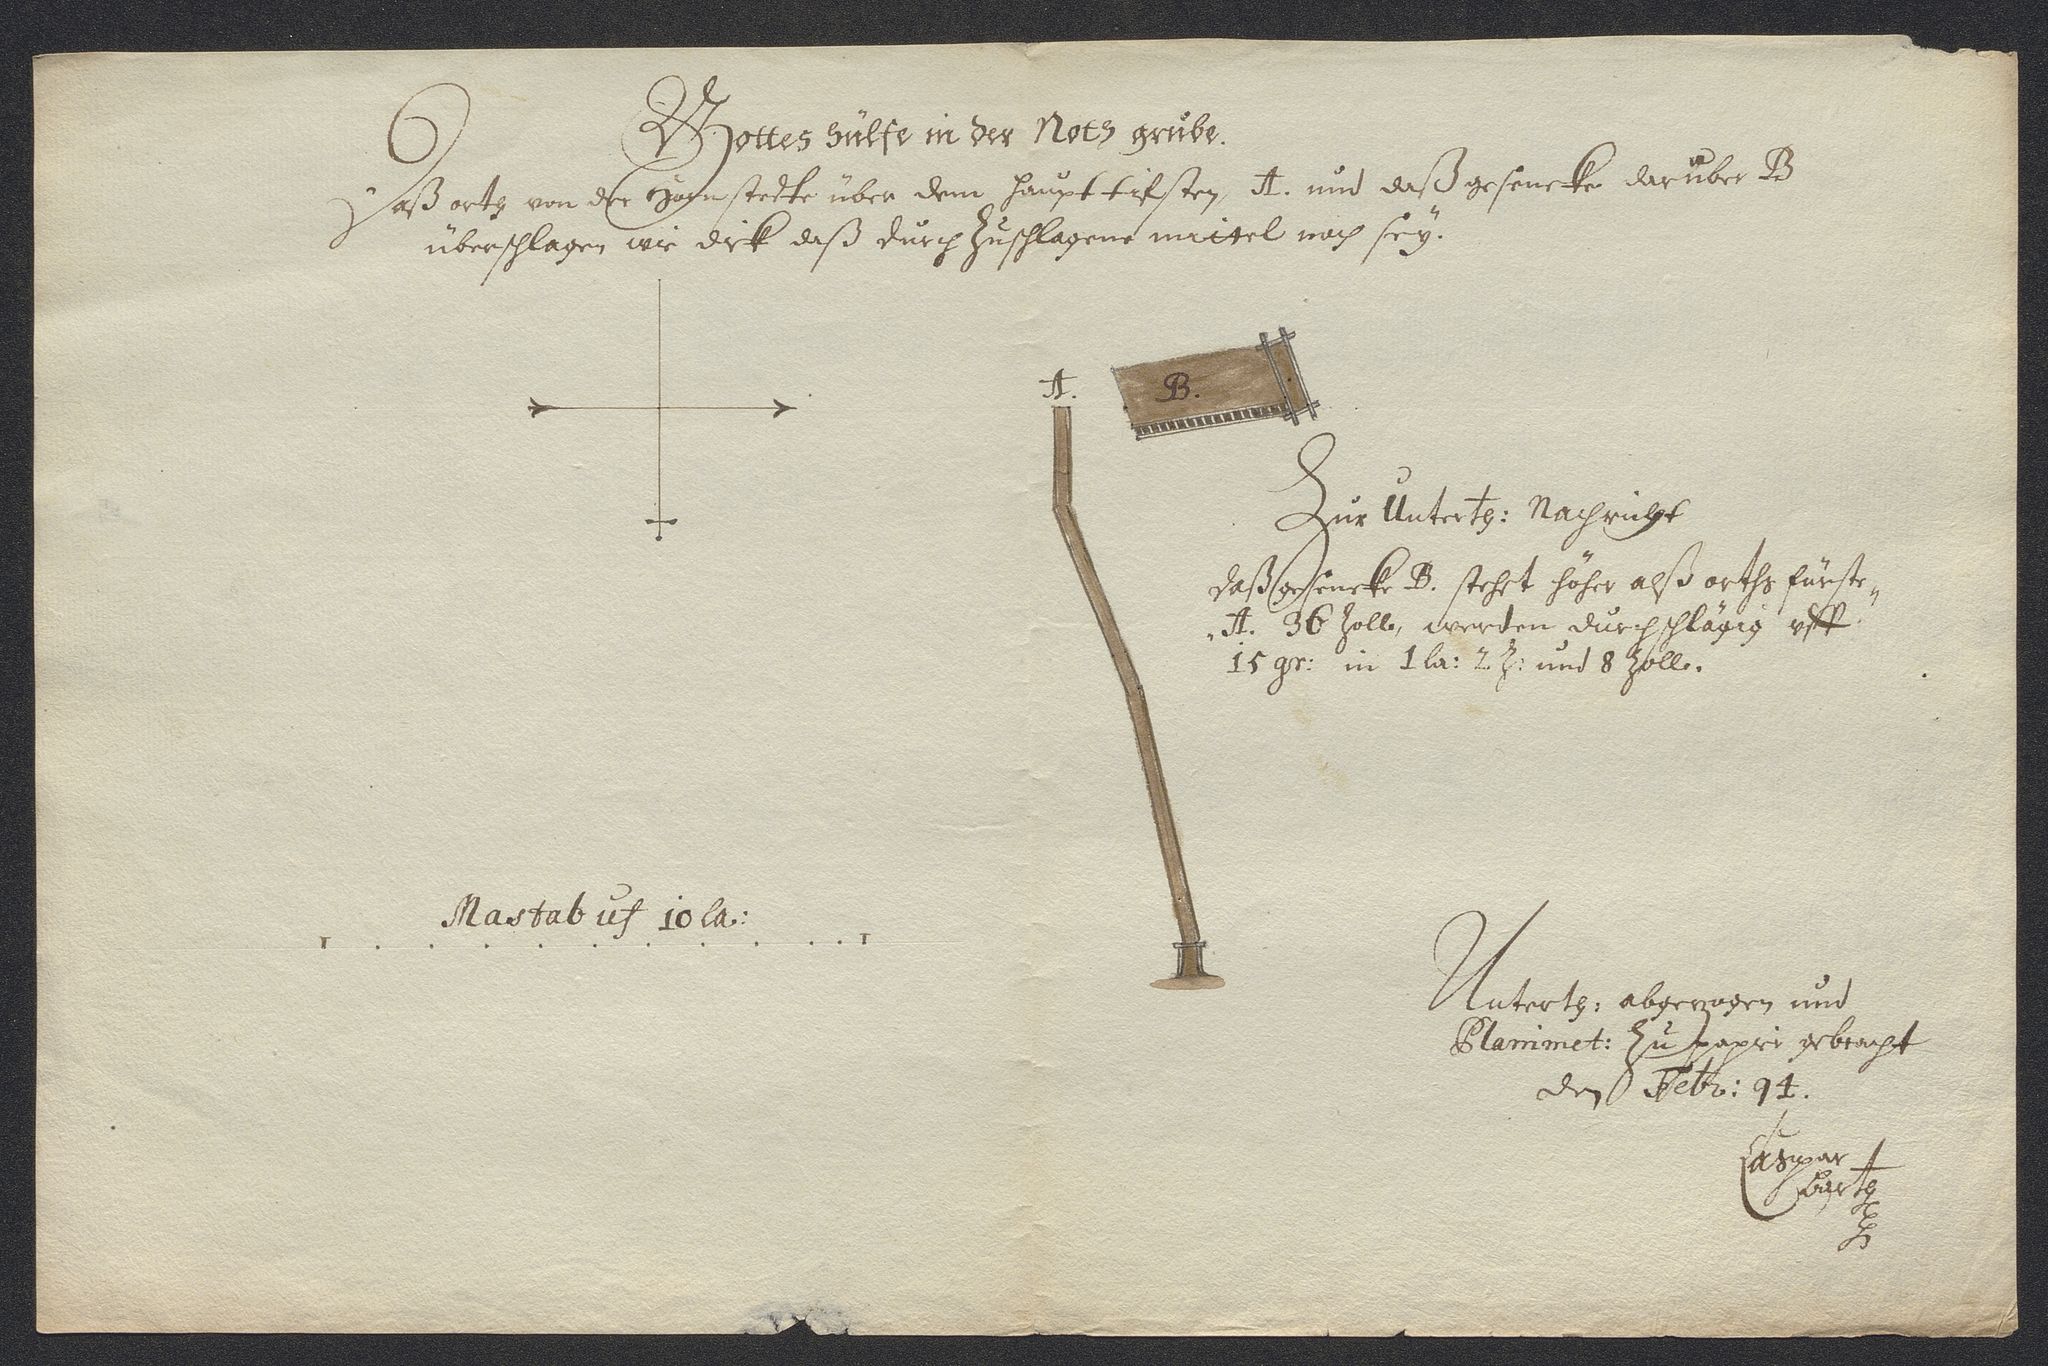 Gottes hülfe in der Noth grube.
Daß orth von der Hornstedte über dem haupt tifsten, A. und daß gesencke darüber B
überschlagen wie dick daß durch Zuschlagene mittel noch seÿ.
A.
B.
Zur Unterth: Nachricht
daß gesencke B. stehet höher alß orths fürste
A. 36 Zolle, werden durchschlägig vff
15 gr: in 1 la: 2 Z: und 8 Zolle.
Mastab uf 10 la:
Unterth: abgezogen und
Planimet: Zu papir gebracht
den Febr: 94.
Caspar
Barth